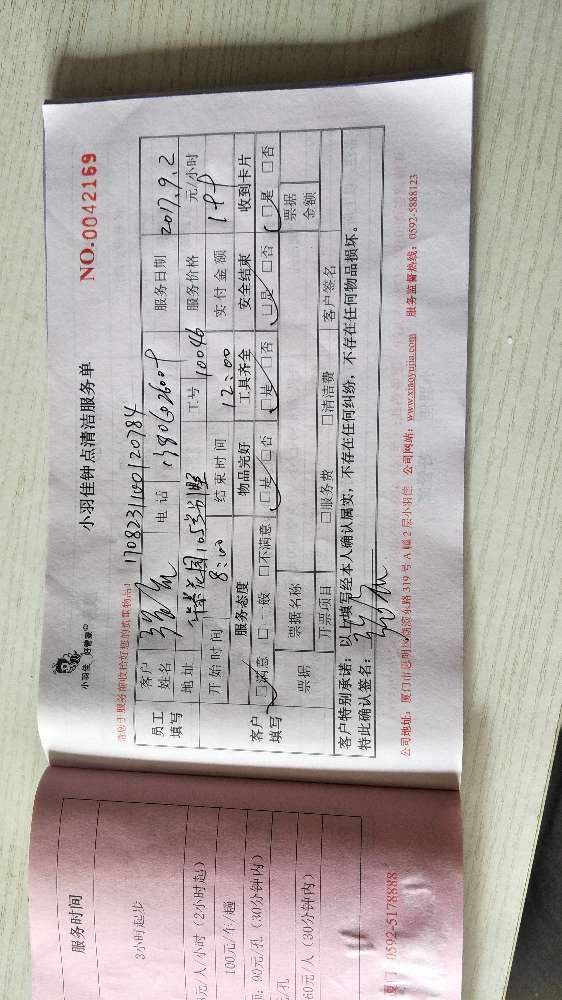 小羽佳 好管家
小羽佳钟点清洁服务单
NO.0042169
请您于服务前收拾好您的贵重物品!
1708231100120784
员工填写
客户姓名
电话
服务日期 2017.9.2
地址 华景花园105号别墅
工号 10046
服务价格 元/小时
开始时间 8:00
结束时间 12:00
实付金额
客户填写
服务态度 物品完好 工具齐全 安全结束 收到卡片
□满意 □一般 □不满意 □是 □否 □是 □否 □是 □否 □是 □否
票据 票据名称 票据金额
开票项目 □服务费 □清洁费 客户签名
客户特别承诺:以上填写经本人确认属实,不存在任何纠纷,不存在任何物品损坏。
特此确认签名:
公司地址:厦门市思明区湖滨东路319号A幢2层小羽佳 公司网站:www.xiaoyujia.com 服务监督热线:0592-5888123
服务时间
3小时起步
元/人/小时(2小时起)
100元/车/趟
:90元/孔(30分钟内)
元/孔
60元/人(30分钟内)
厦门 0592-5178888